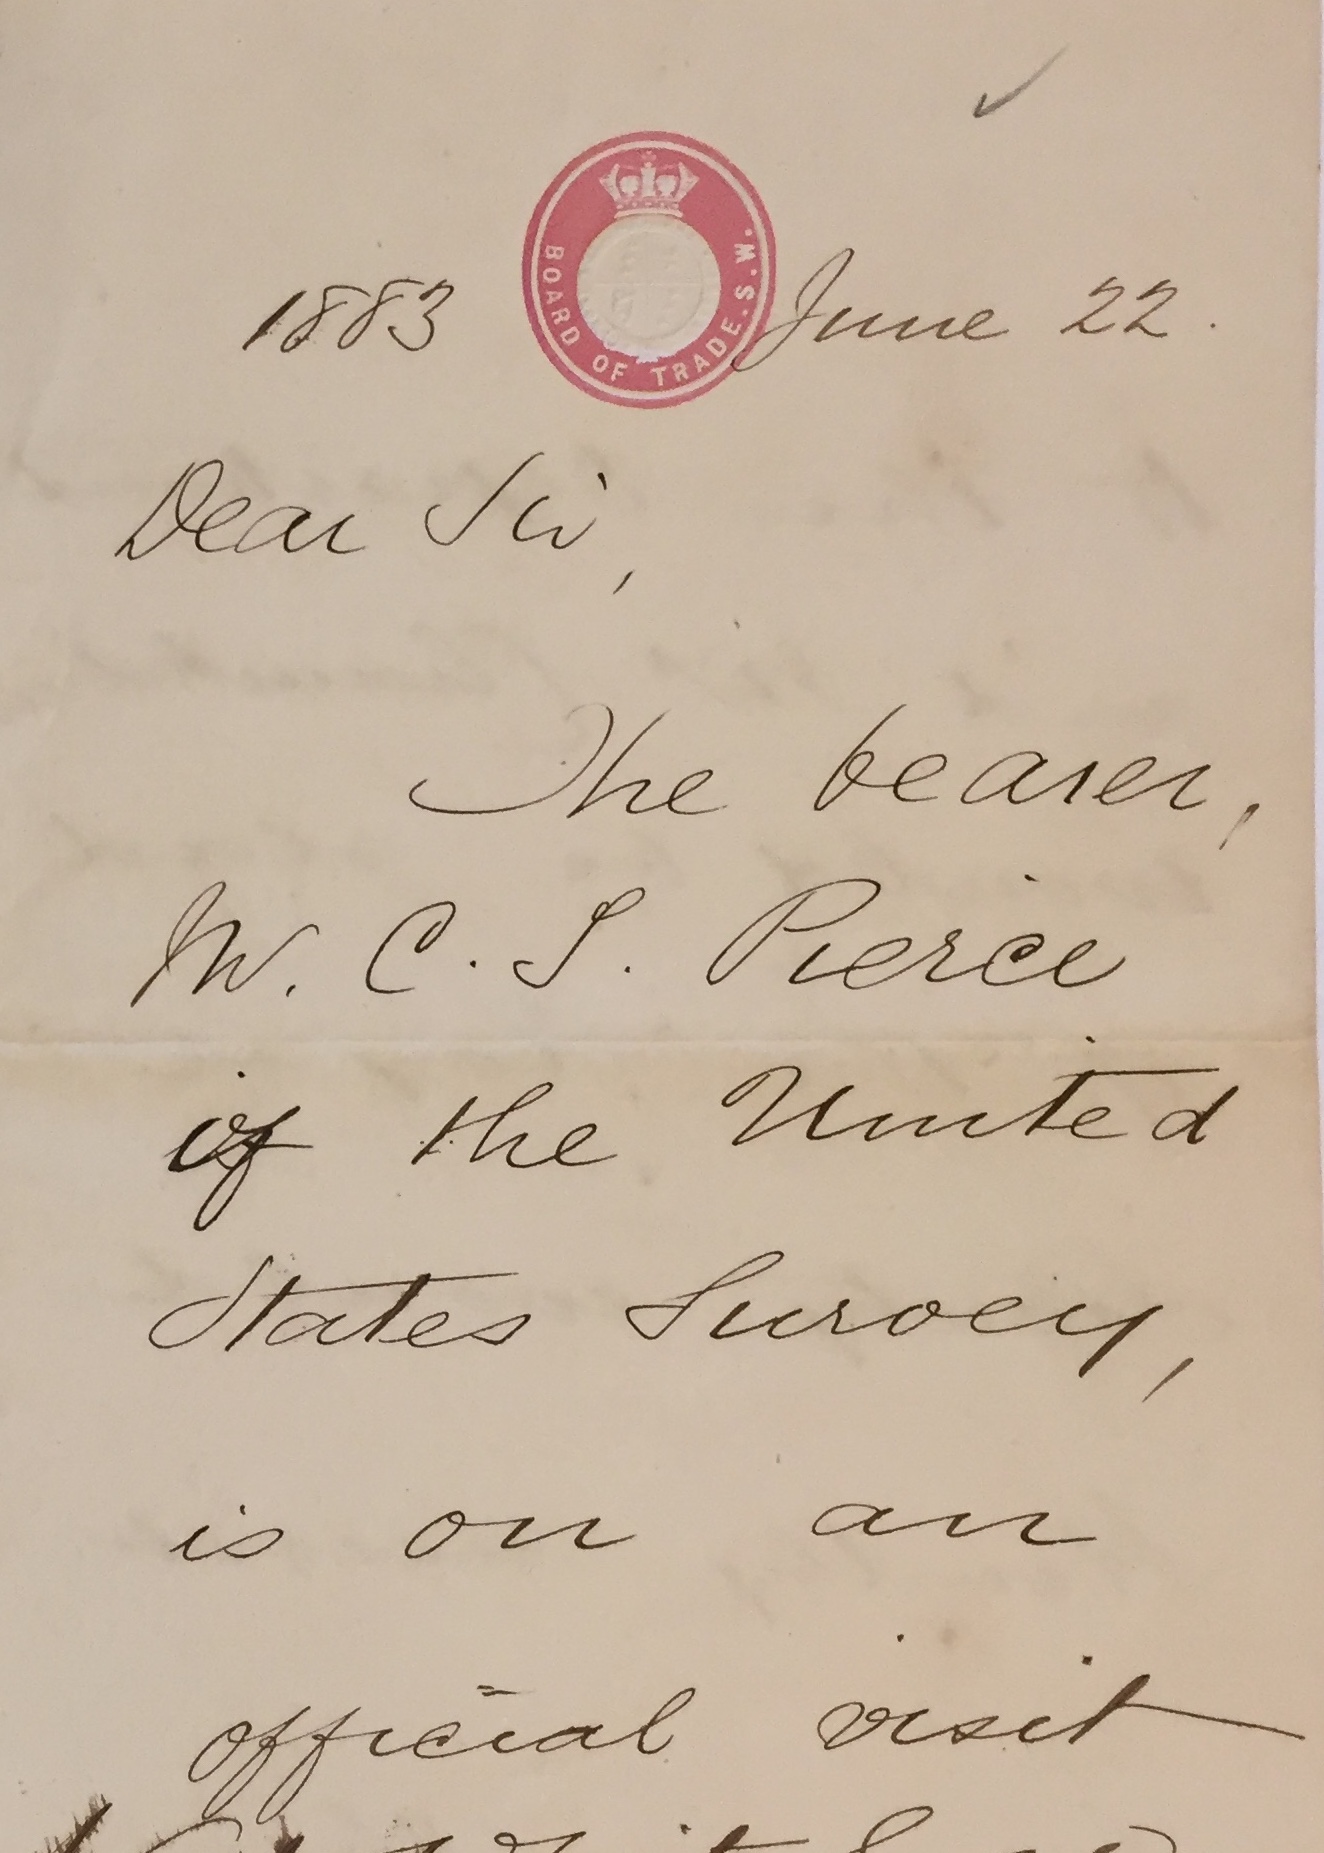 BOARD OF TRADE.S.W.
1883 June 22.
Dear Sir,
The bearer,
M. C. S. Pierce
of the United
States Survey,
is on an
official visit